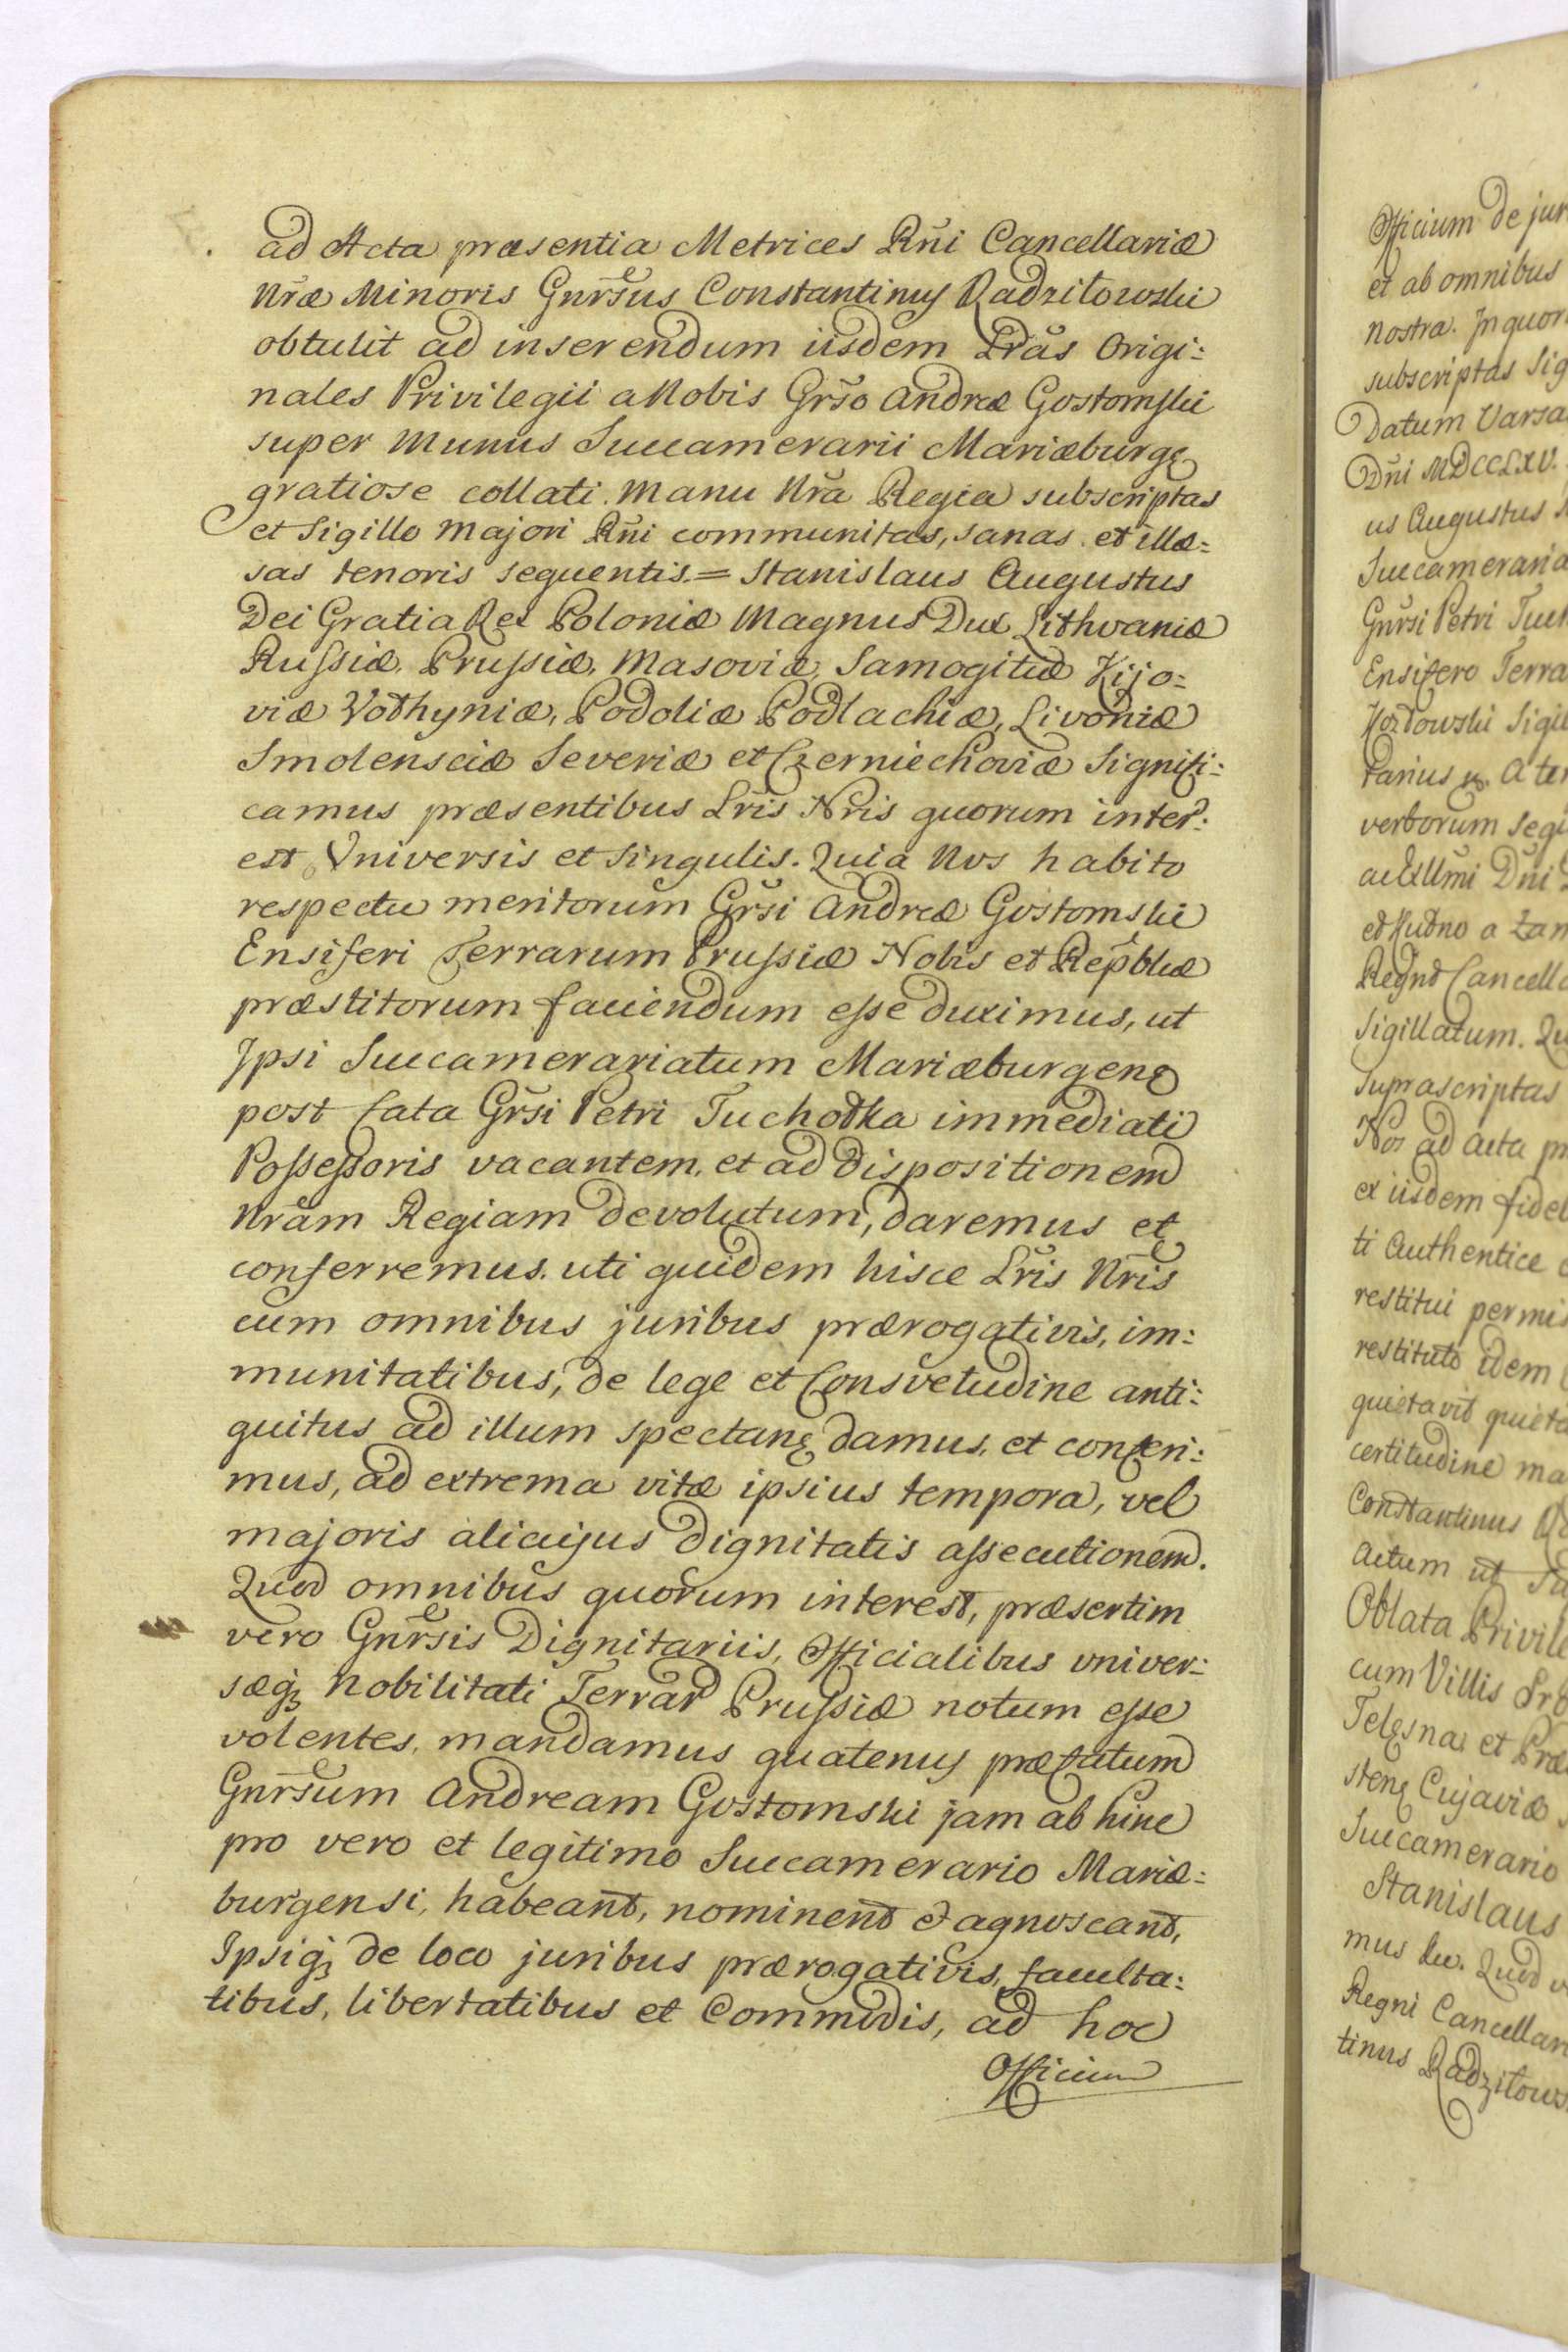 ad Acta præsentia Metrices Rñi Cancellariæ
Nr̃æ Minoris Gnr̃sus Constantinus Radziłowski
obtulit ad inserendum iisdem Lr̃as Origi:
nales Privilegii a Nobis Gr̃so Andreæ Gostomski
super Munus Succamerarii Mariæburgę
gratiose collati. Manu Nr̃a Regia subscriptas
et Sigillo Majori Rñi communitas, sanas et illæ:
sas tenoris sequentis = Stanislaus Augustus
Dei Gratia Rex Poloniæ Magnus Dux Lithvaniæ
Russiæ, Prussiæ, Masoviæ, Samogitiæ Kijo:
viæ Vołhyniæ, Podoliæ Podlachiæ, Livoniæ
Smolensciæ Severiæ et Czerniechoviæ Signifi:
camus præsentibus Lr̃is Nr̃is quorum inter:
est Universis et Singulis. Quia Nos habito
respectu meritorum Gr̃si Andreæ Gostomski
Ensiferi Terrarum Prussiæ Nobis et Reipblicæ
præstitorum faciendum esse duximus, ut
Ipsi Succamerariatum Mariæburgenę
post fata Gr̃si Petri Tuchołka immediati
Possessoris vacantem, et ad Dispositionem
Nr̃am Regiam devolutum, daremus et
conferremus. uti quidem hisce Lr̃is Nr̃is
cum omnibus juribus prærogativis, im:
munitatibus, de lege et Consvetudine anti:
quitus ad illum spectanę damus, et conferi:
mus, ad extrema vitæ ipsius tempora, vel
majoris alicujus Dignitatis assecutionem.
Quod omnibus quorum interest, præsertim
vero Gnr̃sis Dignitariis, Officialibus univer:
sæq3 Nobilitati Terrar Prussiæ notum esse
volentes, mandamus quatenus præfatum
Gnr̃sum Andream Gostomski jam ab hinc
pro vero et legitimo Succamerario Mariæ:
burgensi, habeant, nominent et agnoscant,
Ipsiq3 de loco juribus prærogativis, faculta:
tibus, libertatibus et Commodis, ad hoc
Officium
Officium de jur
et ab omnibus
nostra. In quor
subscriptas Sig
Datum Varsa
Dñi MDCCLXV.
us Augustus
Succameraria
Gnr̃si Petri Tuch
Ensifero Terra
Sigil
tarius
verborum sequ
Dñi
Cancella
Sigillatum. Qu
Suprascriptas
Nos ad acta pr
ex iisdem fidel
ti Authentice
restitui permis
restituto idem
quietavit quieta
certitudine ma
Constantinus
Actum ut
Oblata Privile
cum Villis
et Præ
stenę Cujaviæ
Succamerario
Stanislaus
mus &c. Quod
Regni Cancellar
tinus Radziłows